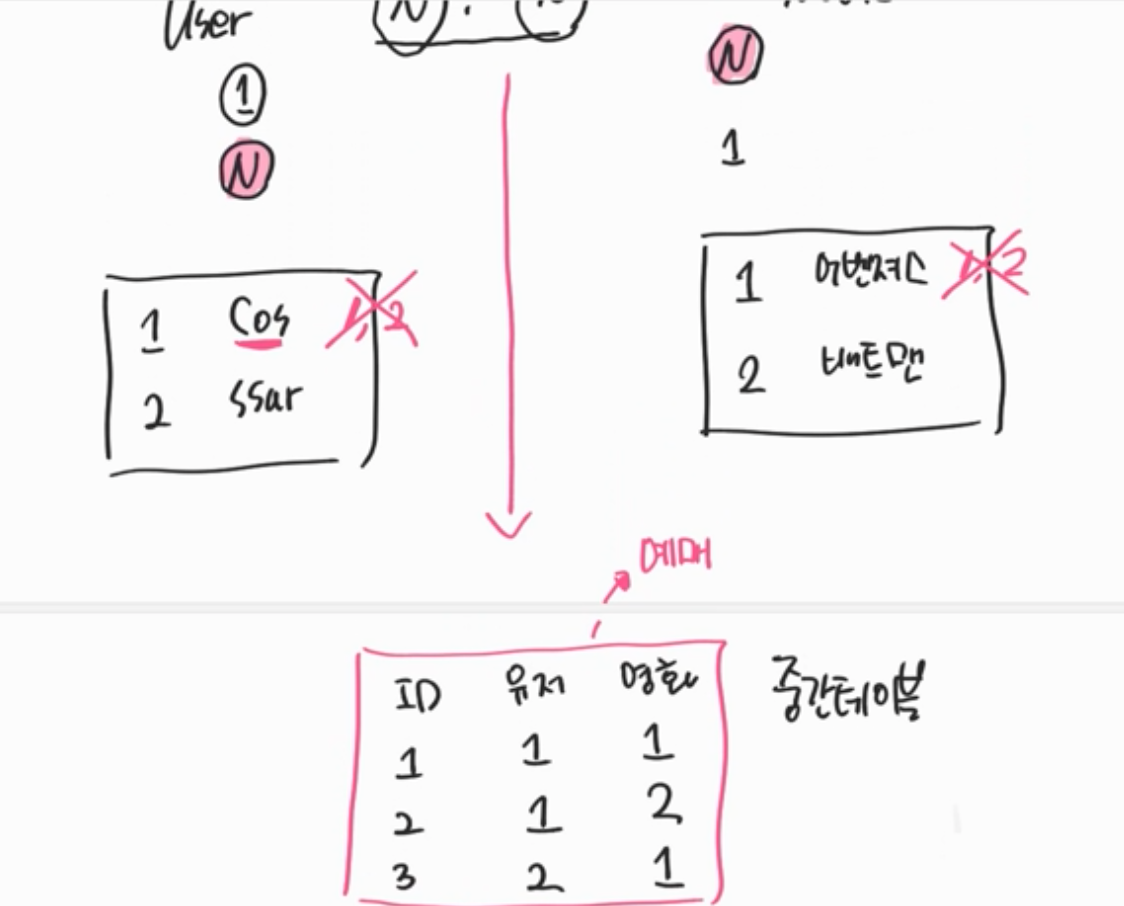 User N :
1 N
N 1
1 Cos 1, 2
2 ssar
1 어벤져스 1, 2
2 배트맨
예매
ID 유저 영화 중간테이블
1 1 1
2 1 2
3 2 1